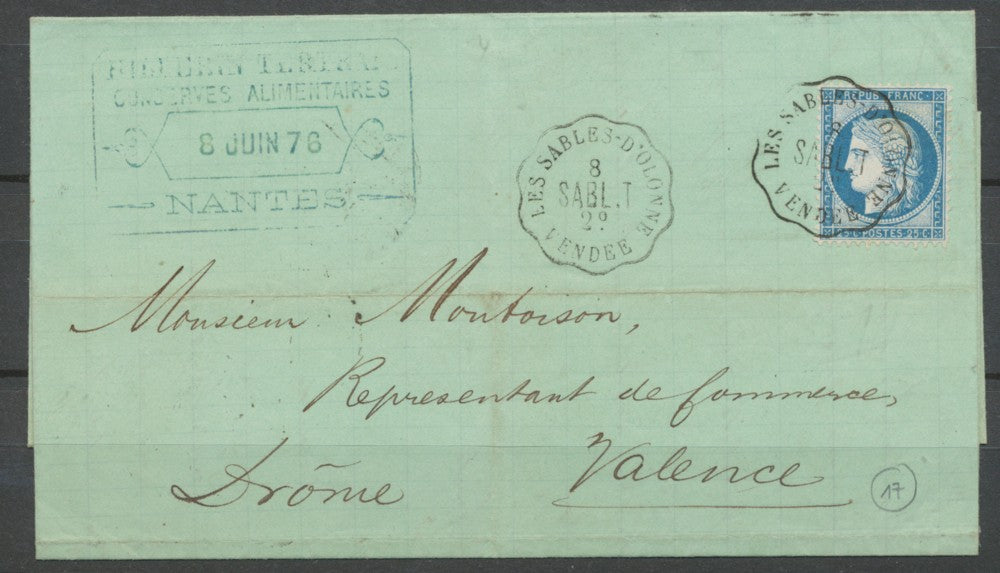 CONSERVES ALIMENTAIRES
8 JUIN 76
NANTES
LES SABLES-D'OLONNE
8
SABL.T
2º
VENDEE
LES SABLES-D'OLONNE
8
SABL.T
VENDEE
REPUB FRANC
25 C POSTES 25 C
Monsieur Montoison,
Représentant de Commerce,
Drôme Valence
17